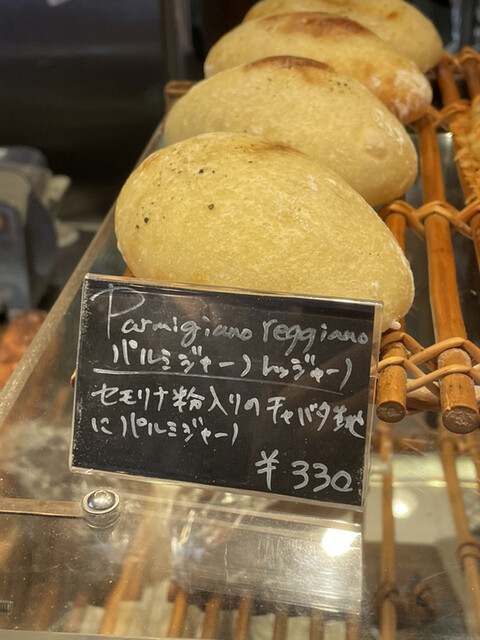 Parmigiano reggiano
パルミジャーノレッジャーノ
セモリナ粉入りのチャバタ生地
にパルミジャーノ
¥330